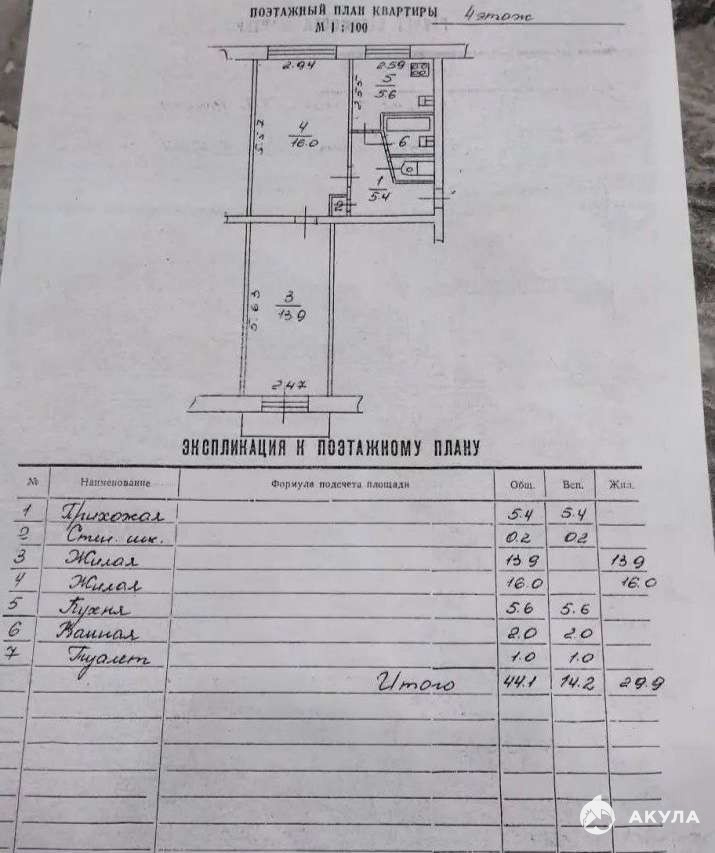 ПОЭТАЖНЫЙ ПЛАН КВАРТИРЫ 4 этаж
М 1 : 100
2.94
2.59
5
5.6
2.55
5.57
4
16.0
6
1
5.4
2
3
13.9
5.63
2.47
ЭКСПЛИКАЦИЯ К ПОЭТАЖНОМУ ПЛАНУ
№ Наименование Формула подсчета площади Общ. Всп. Жил.
1 Прихожая 5.4 5.4
2 Стен. шк. 0.2 0.2
3 Жилая 13.9 13.9
4 Жилая 16.0 16.0
5 Кухня 5.6 5.6
6 Ванная 2.0 2.0
7 Туалет 1.0 1.0
Итого 44.1 14.2 29.9
АКУЛА